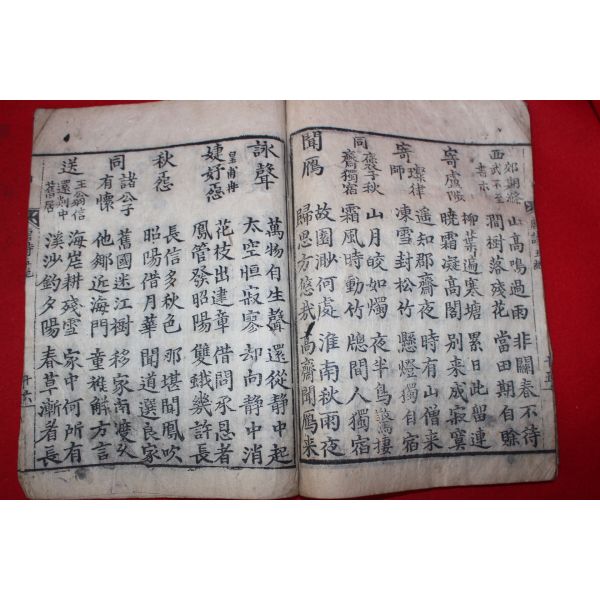 西郊期滁
武不至
書示
山高鳴過雨 非關春不待
澗樹落殘花 當田期自賒
寄盧陟
柳葉遍寒塘 累日此留連
曉霜凝高閣 別來成寂寞
寄璨律師
遙知郡齋夜 時有山僧來
凍雪封松竹 懸燈獨自宿
同褒子秋
齋獨宿
山月皎如燭 夜半鳥驚棲
霜風時動竹 牕間人獨宿
聞鴈
故園渺何處 淮南秋雨夜
歸思方悠哉 高齋聞鴈來
詠聲
萬物自生聲 還從静中起
太空恒寂寥 却向静中消
婕妤怨 皇甫冉
花枝出建章 借問承恩者
鳳管發昭陽 雙蛾幾許長
秋怨
長信多秋色 那堪聞鳳吹
昭陽借月華 聞道選良家
同諸公子
有懷
舊國迷江樹 移家南渡久
他鄉近海門 童稚解方言
送王翁信
還剡中
舊居
海岸耕殘雪 家中何所有
溪沙釣夕陽 春草漸看長